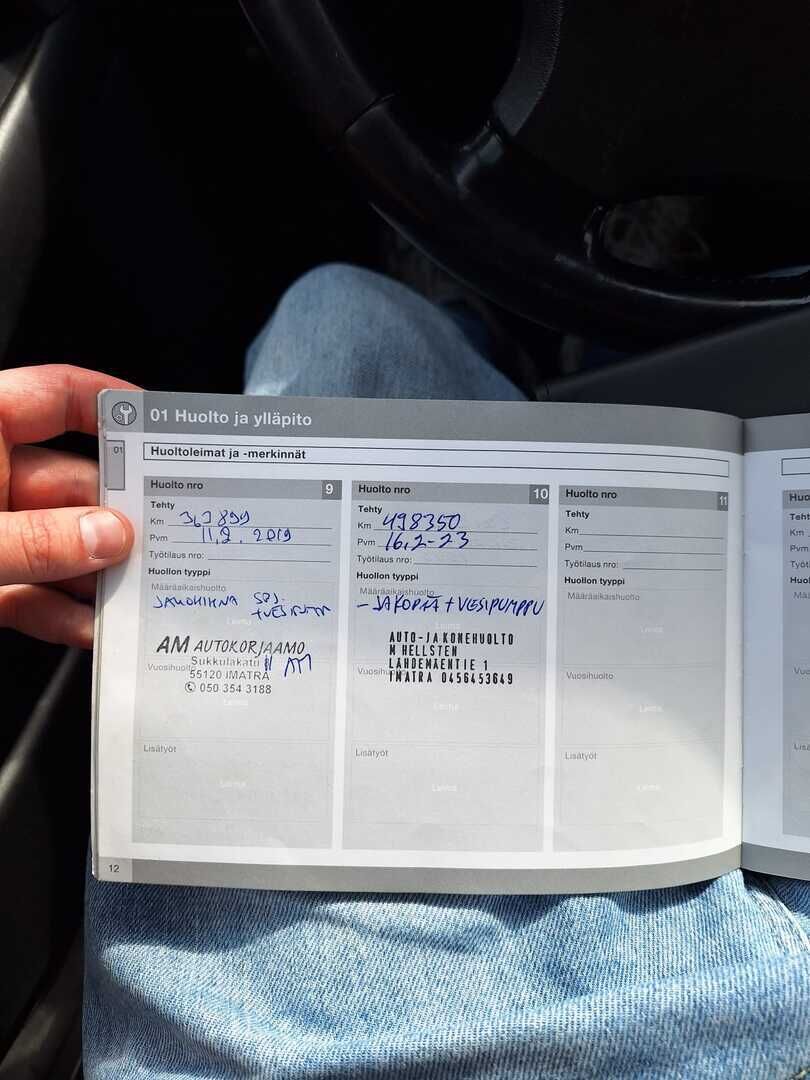 01 Huolto ja ylläpito
01
Huoltoleimat ja -merkinnät
Huolto nro 9
Tehty
Km 363899
Pvm 11.2.2019
Työtilaus nro:
Huollon tyyppi
Määräaikaishuolto
JAKOHIHNA SRJ.
Leima
AM AUTOKORJAAMO
Sukkulakatu 11 AM
Vuosihuolto
55120 IMATRA
✆ 050 354 3188
Leima
Lisätyöt
Leima
Huolto nro 10
Tehty
Km 498350
Pvm 16.2-23
Työtilaus nro:
Huollon tyyppi
Määräaikaishuolto
- JAKOPÄÄ + VESIPUMPPU
Leima
AUTO-JA KONEHUOLTO
M HELLSTEN
LÄHDEMÄENTIE 1
Vuosihuolto
IMATRA 0456453649
Leima
Lisätyöt
Leima
Huolto nro 11
Tehty
Km
Pvm
Työtilaus nro:
Huollon tyyppi
Määräaikaishuolto
Leima
Vuosihuolto
Leima
Lisätyöt
Leima
12